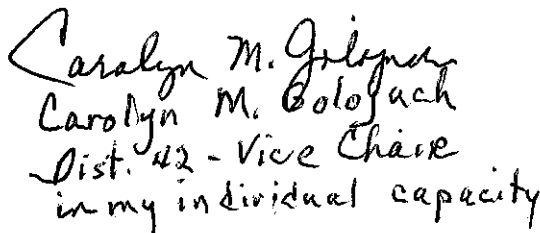 Carolyn M.
Carolyn M. Gologach
Dist. 42 - Vice Chair
in my individual capacity